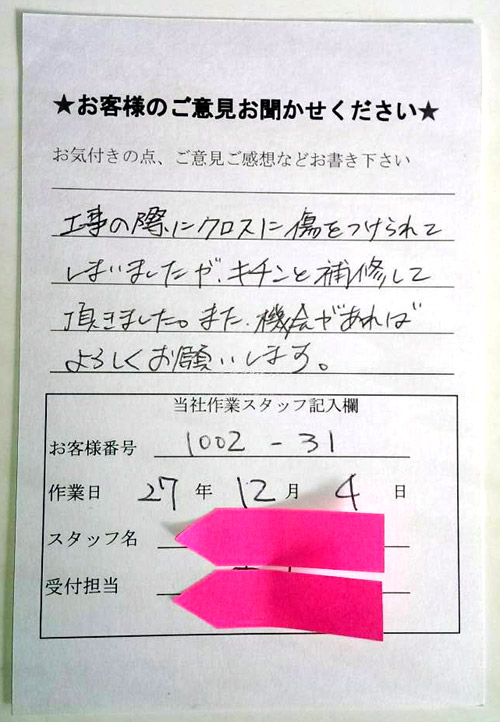 ★お客様のご意見お聞かせください★
お気付きの点、ご意見ご感想などお書き下さい
工事の際にクロスに傷をつけられて
しまいましたが、キチンと補修して
頂きました。また、機会があれば
よろしくお願いします。
当社作業スタッフ記入欄
お客様番号 1002 - 31
作業日 27 年 12 月 4 日
スタッフ名
受付担当